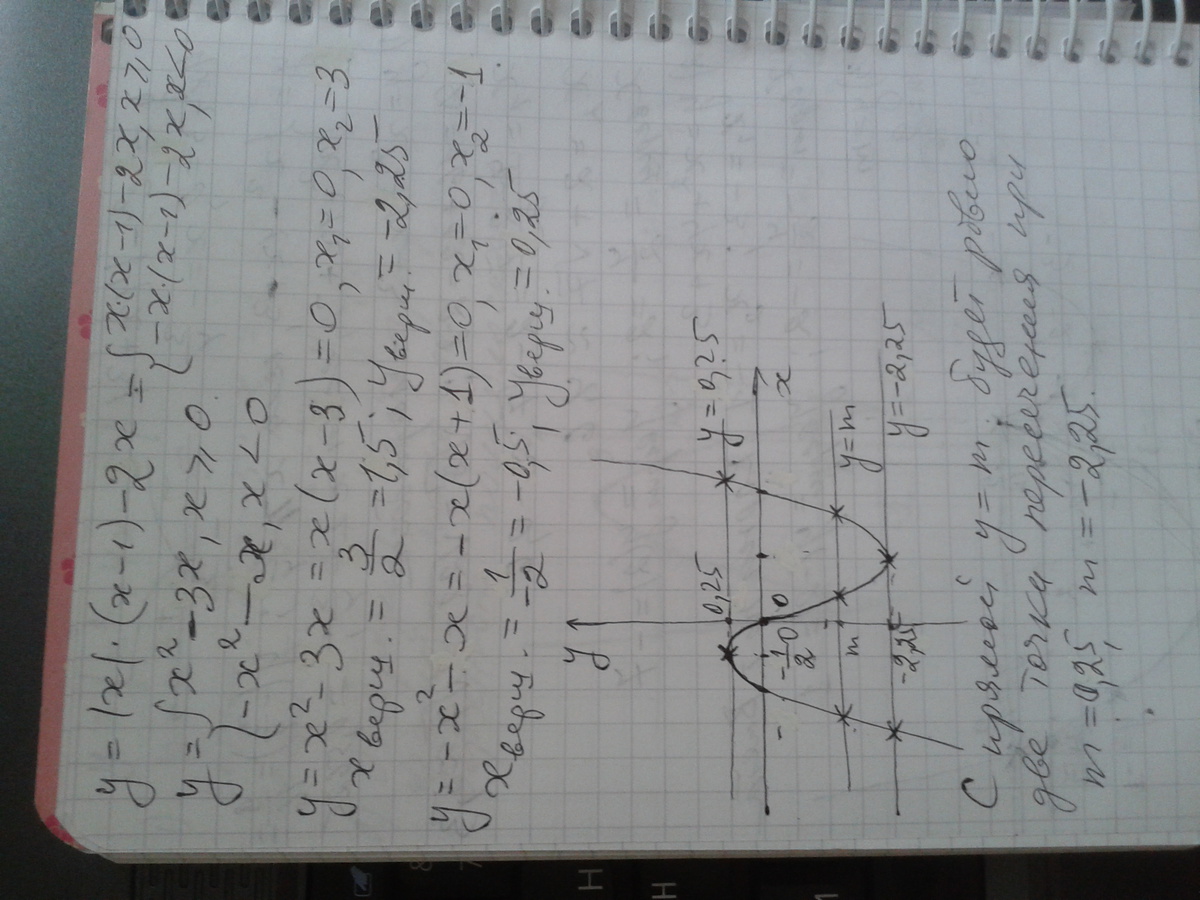 y = |x|·(x-1)-2x = { x·(x-1)-2x, x≥0
{ -x·(x-1)-2x, x<0
y = { x²-3x, x≥0
{ -x²-x, x<0
y = x²-3x = x(x-3)=0, x₁=0, x₂=3
x верш. = 3/2 = 1,5; y верш. = -2,25
y = -x²-x = -x(x+1)=0, x₁=0, x₂=-1
x верш. = 1/-2 = -0,5, y верш. = 0,25
y
0,25
y = 0,25
-1/2
0
0
x
m
y = m
-2,25
y = -2,25
С прямой y = m будет ровно
две точки пересечения при
m = 0,25, m = -2,25.